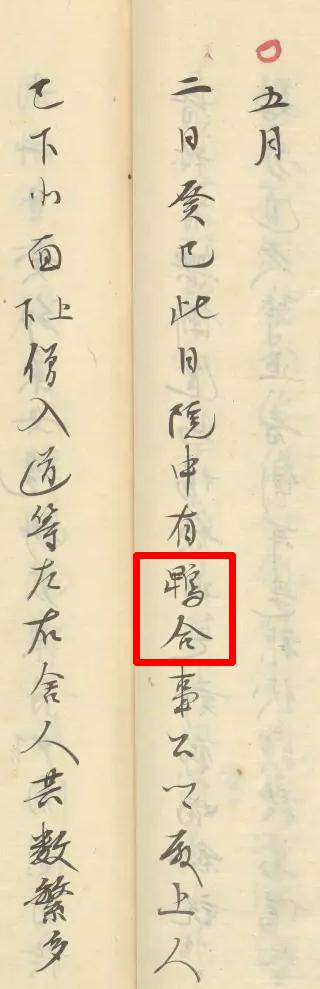 五月
二日癸巳此日院中有鵯合事公卿殿上人
已下北面上下僧入道等左右舎人其数繁多